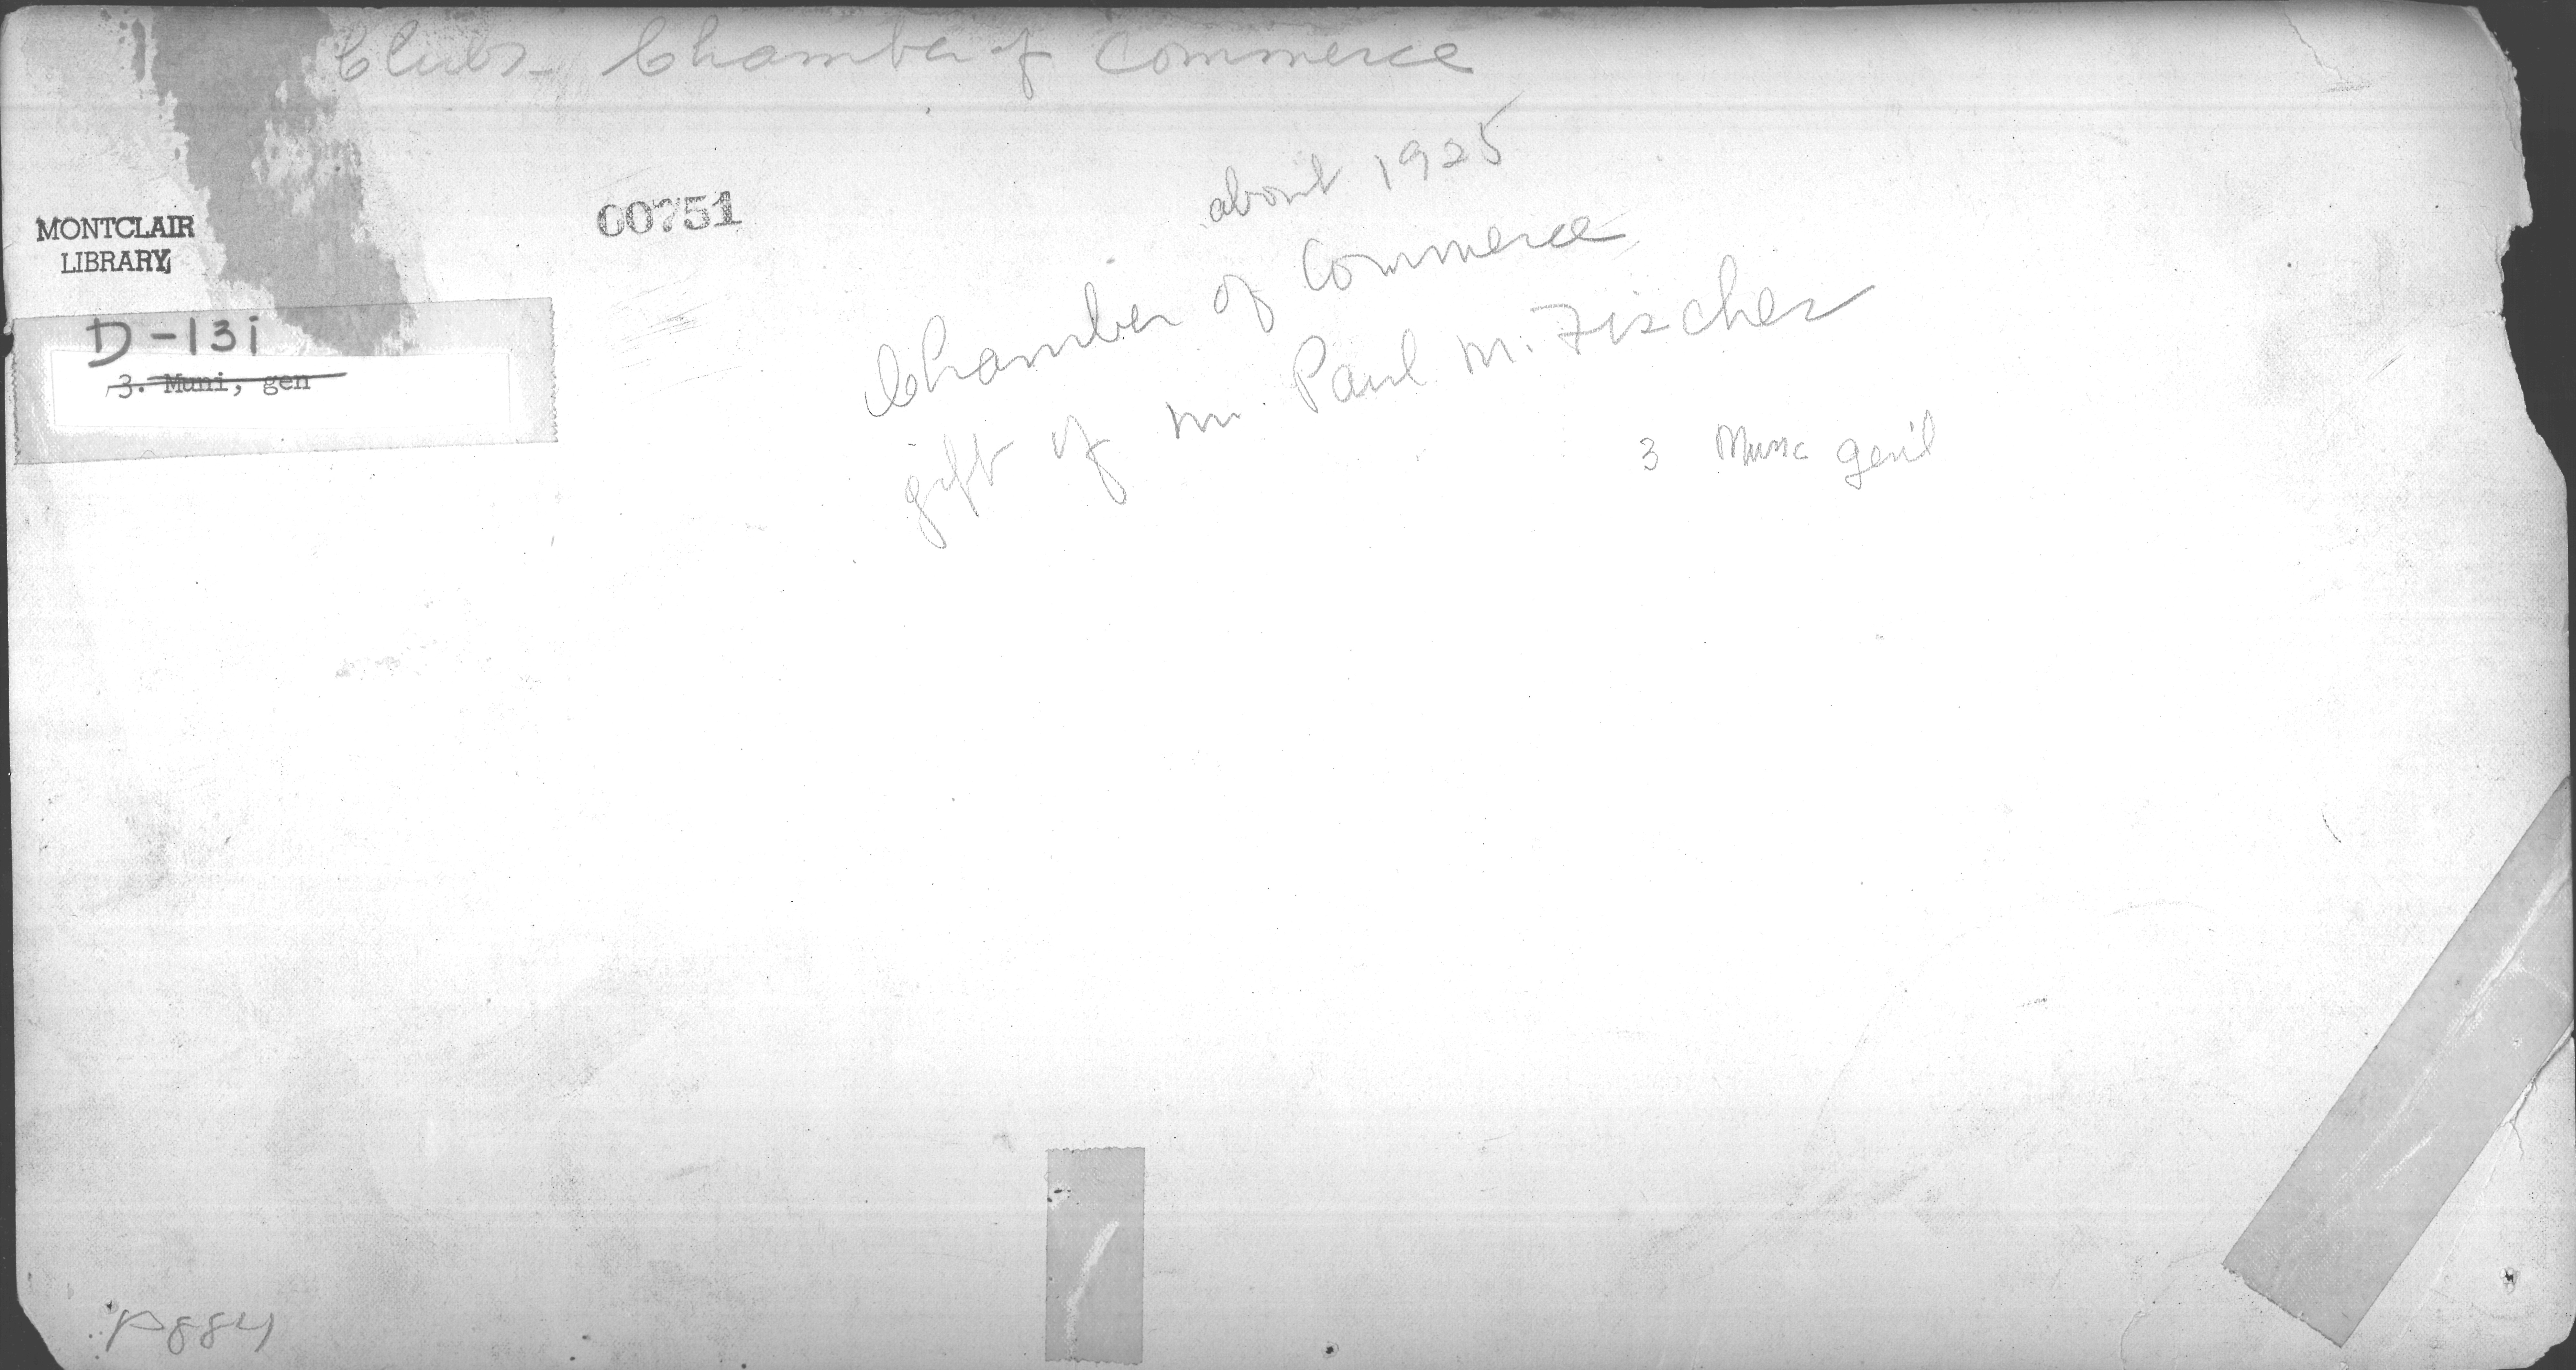 Clubs - Chamber of Commerce
about 1925
00751
MONTCLAIR
LIBRARY
Chamber of Commerce
gift of Mr. Paul M. Fischer
D-13i
3. Muni, gen
3 gen'l
P884